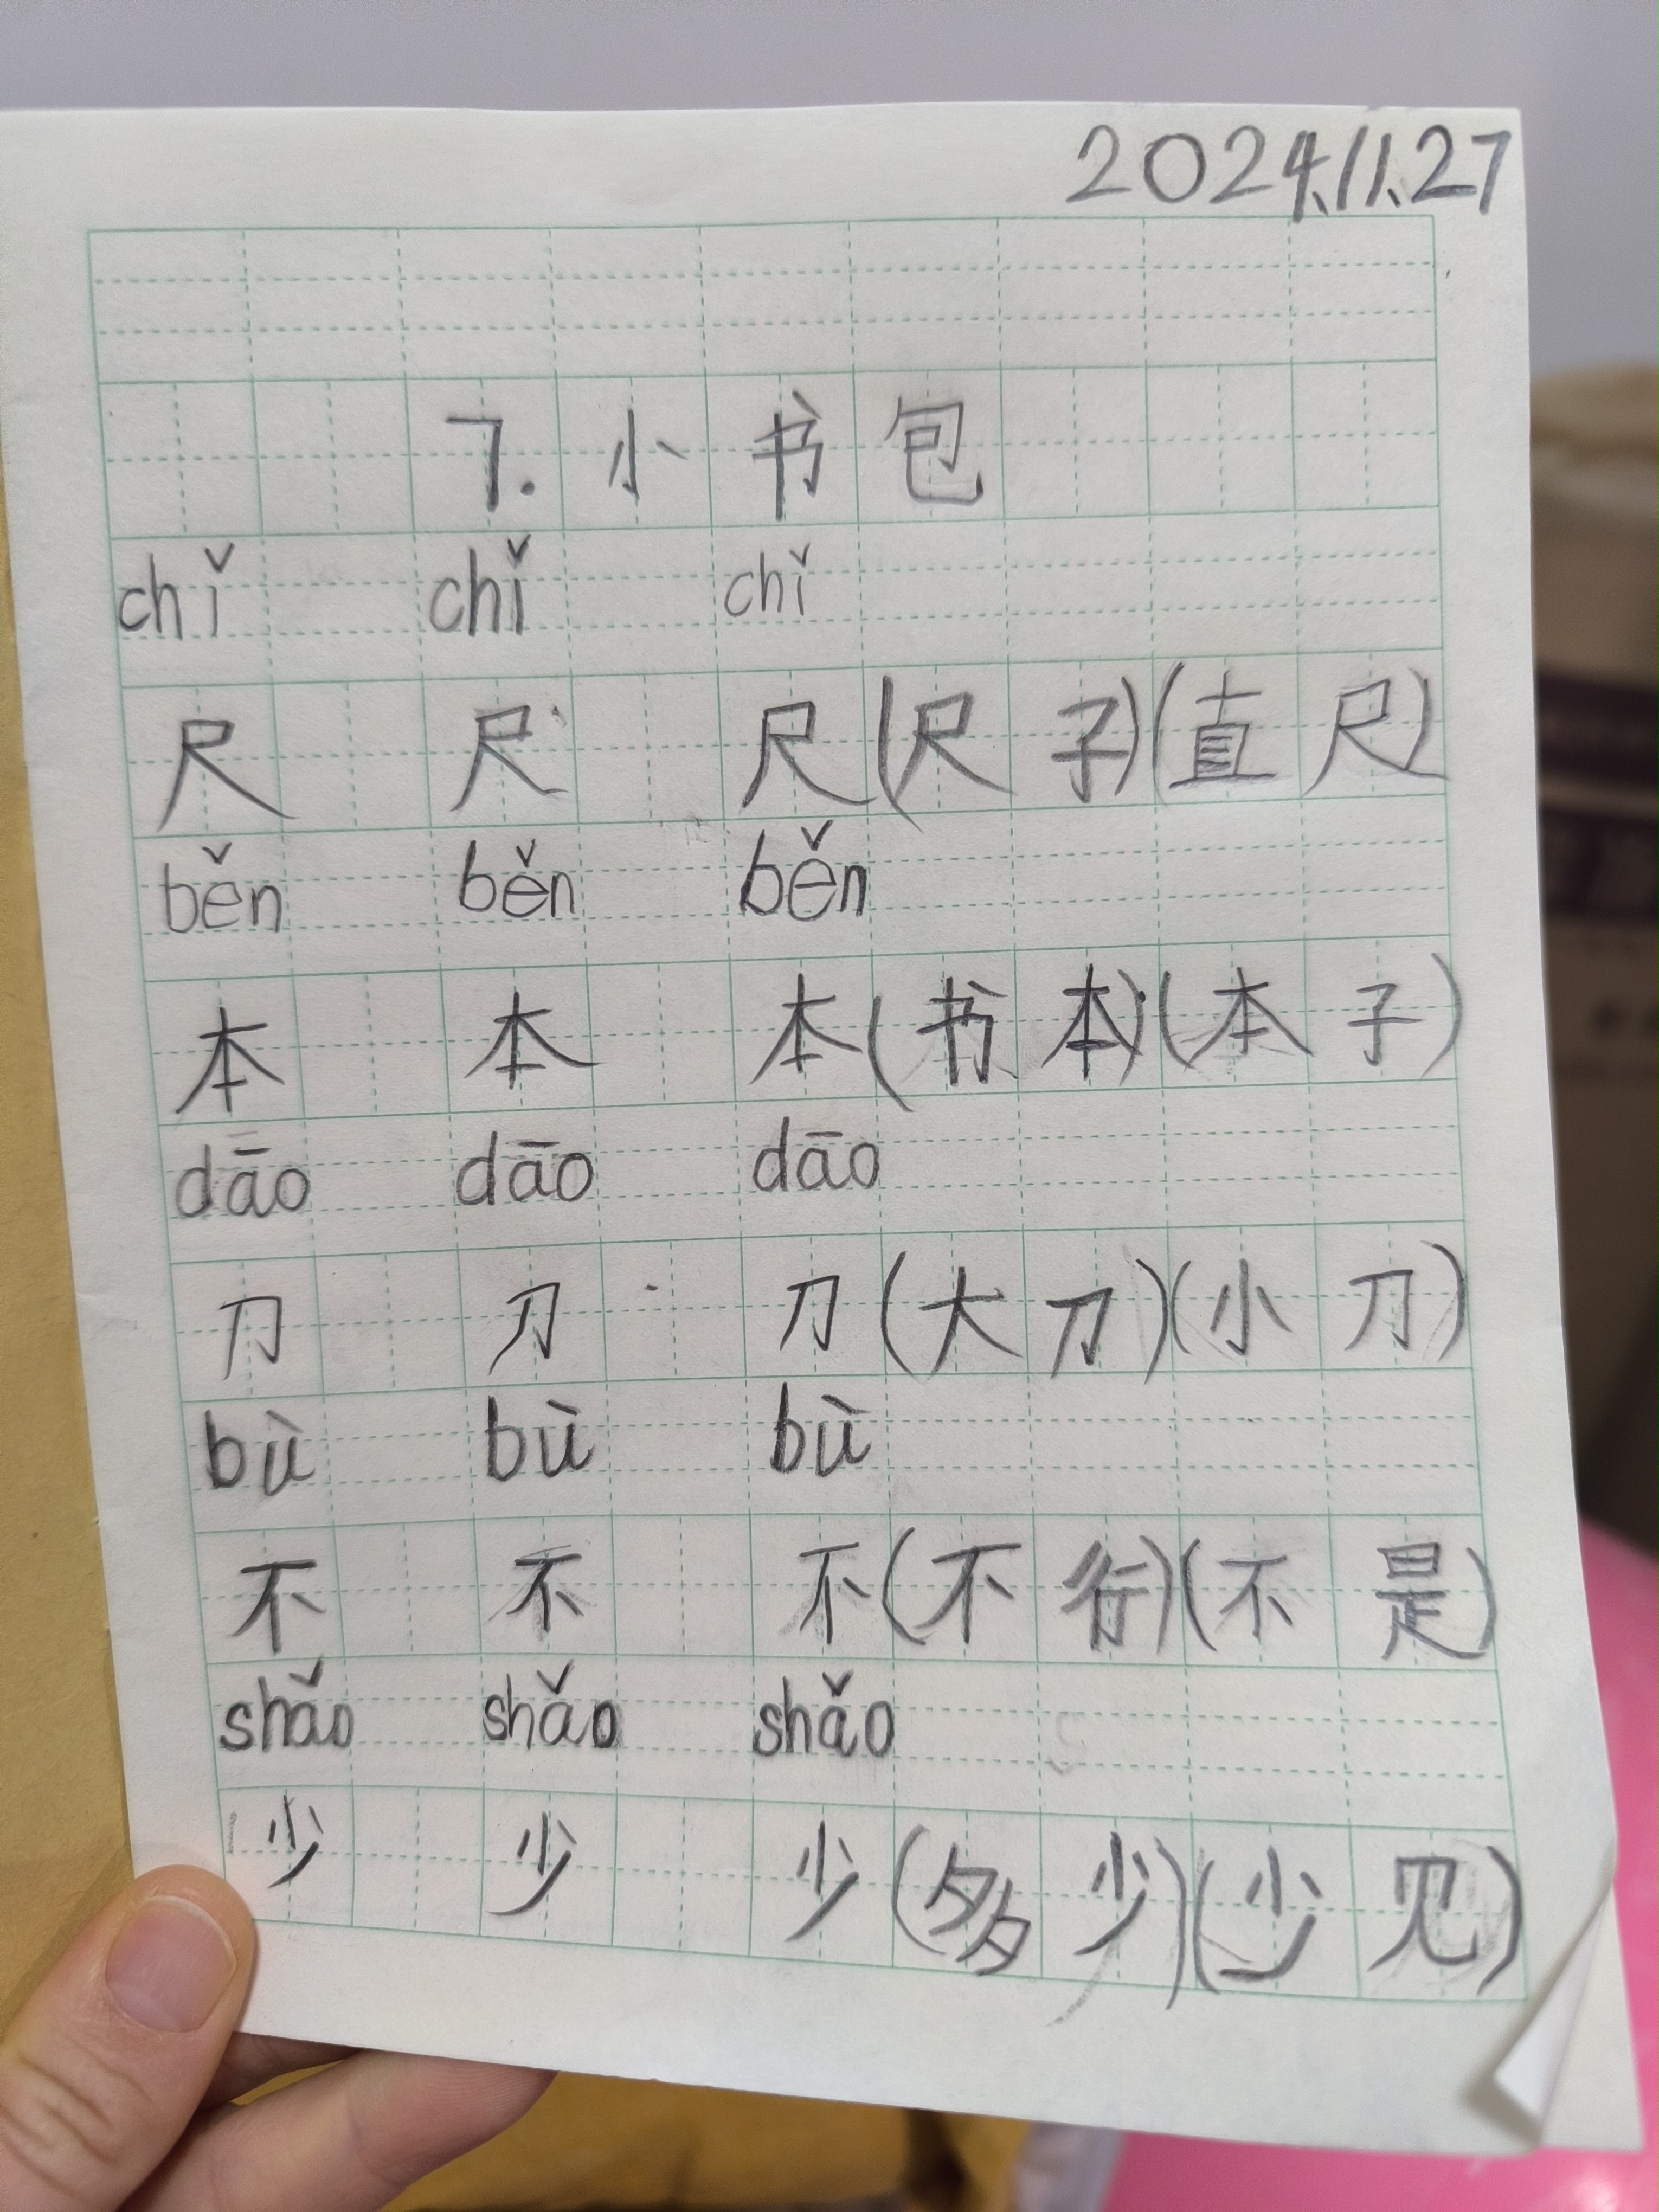 2024.11.27
7. 小书包
chǐ chǐ chǐ
尺 尺 尺(尺子)(直尺)
běn běn běn
本 本 本(书本)(本子)
dāo dāo dāo
刀 刀 刀(大刀)(小刀)
bù bù bù
不 不 不(不行)(不是)
shǎo shǎo shǎo
少 少 少(多少)(少见)